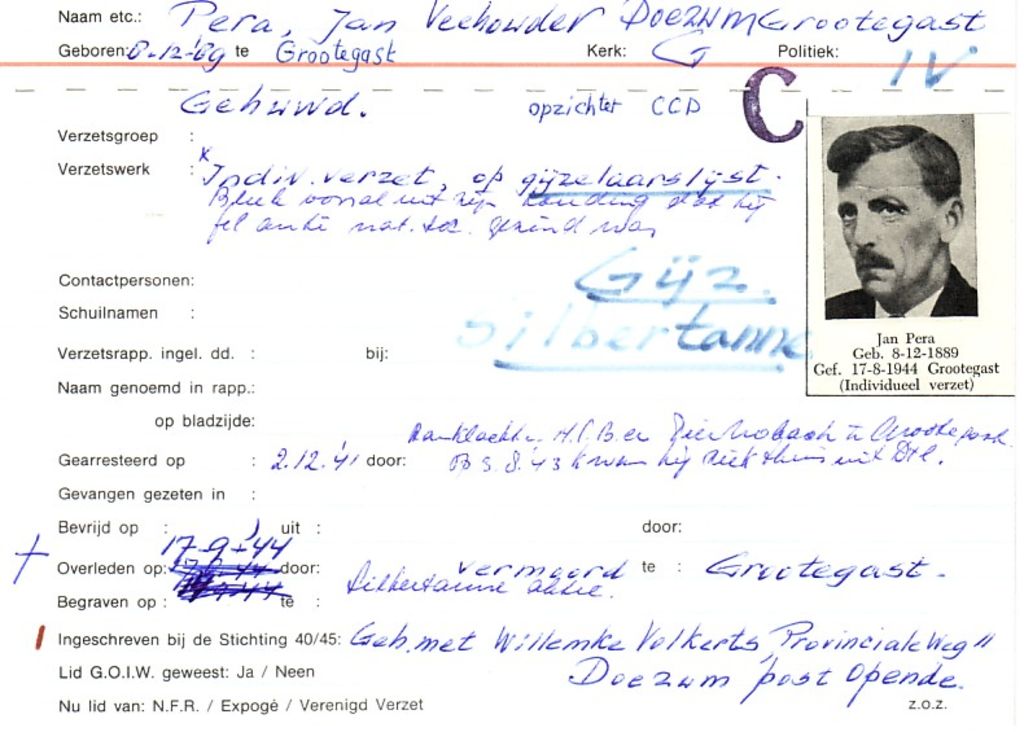 Naam etc.: Pera, Jan Veehouder DOEZUM Grootegast
Geboren: 8-12-'89 te Grootegast Kerk: G Politiek:
IV
Gehuwd. opzichter CCD C
Verzetsgroep :
Verzetswerk : x Indiv. verzet, op gijzelaarslijst.
Bleek vooral uit zijn houding dat hij
fel anti nat. soc. gezind was
Contactpersonen:
Gijz.
Schuilnamen :
Silbertanne
Jan Pera
Geb. 8-12-1889
Gef. 17-8-1944 Grootegast
(Individueel verzet)
Verzetsrapp. ingel. dd. : bij:
Naam genoemd in rapp.:
op bladzijde:
N.S.B.er Grootegast.
Gearresteerd op : 2.12.'41 door: Op 5.8.'43 kwam hij ziek thuis uit Dtl.
Gevangen gezeten in :
Bevrijd op : uit : door:
17-9-'44
Overleden op: door: vermoord te : Grootegast.
Silbertanne aktie.
Begraven op : te :
Ingeschreven bij de Stichting 40/45: Geh. met Willemke Volkerts, "Provinciale Weg"
Lid G.O.I.W. geweest: Ja / Neen Doezum post Opende.
Nu lid van: N.F.R. / Expogé / Verenigd Verzet z.o.z.